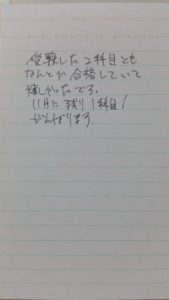 受験した2科目とも
なんとか合格していて
嬉しかったです。
11月に残り1科目!
がんばります。